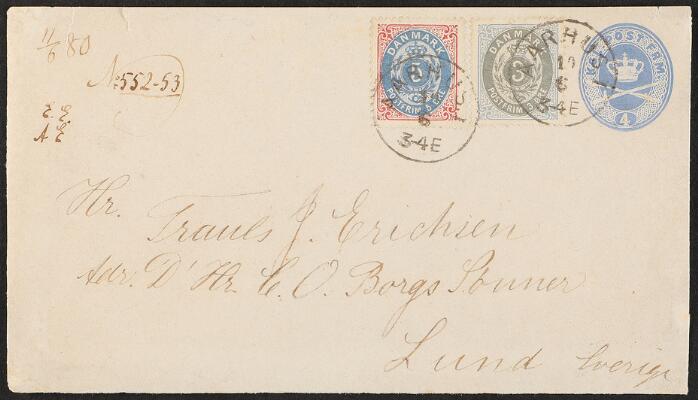 11/6 80
No 552-53
E. E.
A E
DANMARK
8
POSTFRIM. 8 ØRE
DANMARK
3
POSTFRIM. 3 ØRE
POSTFRIM.
4
AARHUS
6
3-4E
AARHUS
10
6
3-4E
Hr. Trauls J. Erichsen
Adr. D' Hr. C. O. Borgs Sönner
Lund Sverige